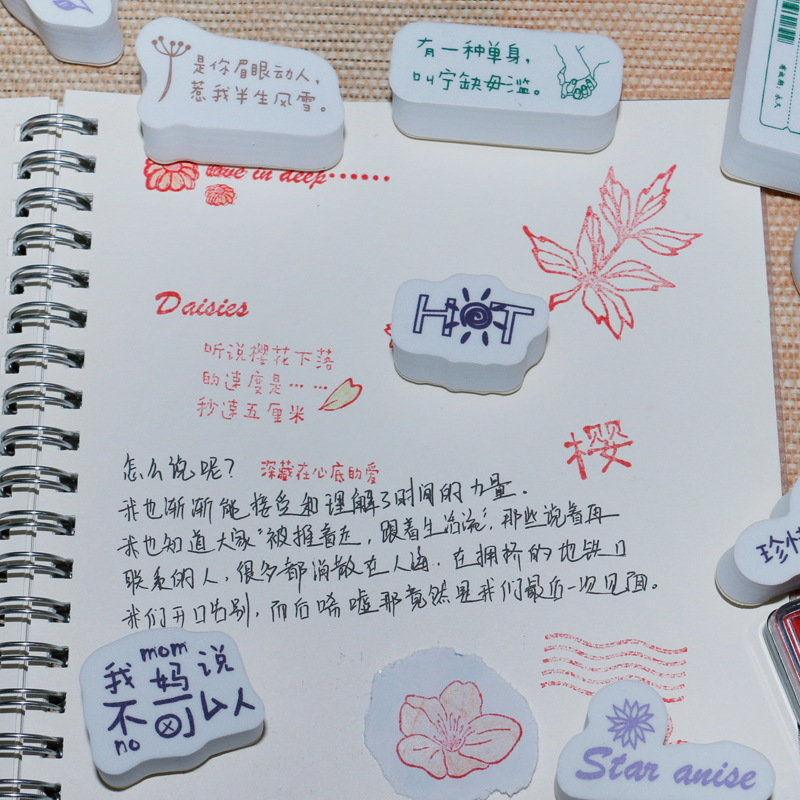 是你眉眼动人，
惹我半生风雪。
有一种单身，
叫宁缺毋滥。
love in deep······
Daisies
HOT
听说樱花下落
的速度是……
秒速五厘米
樱
怎么说呢？
深藏在心底的爱
我也渐渐能接受和理解了时间的力量.
我也知道大家"被推着走，跟着生活流"，那些说着再
联系的人，很多都消散在人海，在拥挤的地铁口
我们开口告别，而后唏嘘那竟然是我们最后一次见面。
mom
我妈说
不可以
no
人
Star anise